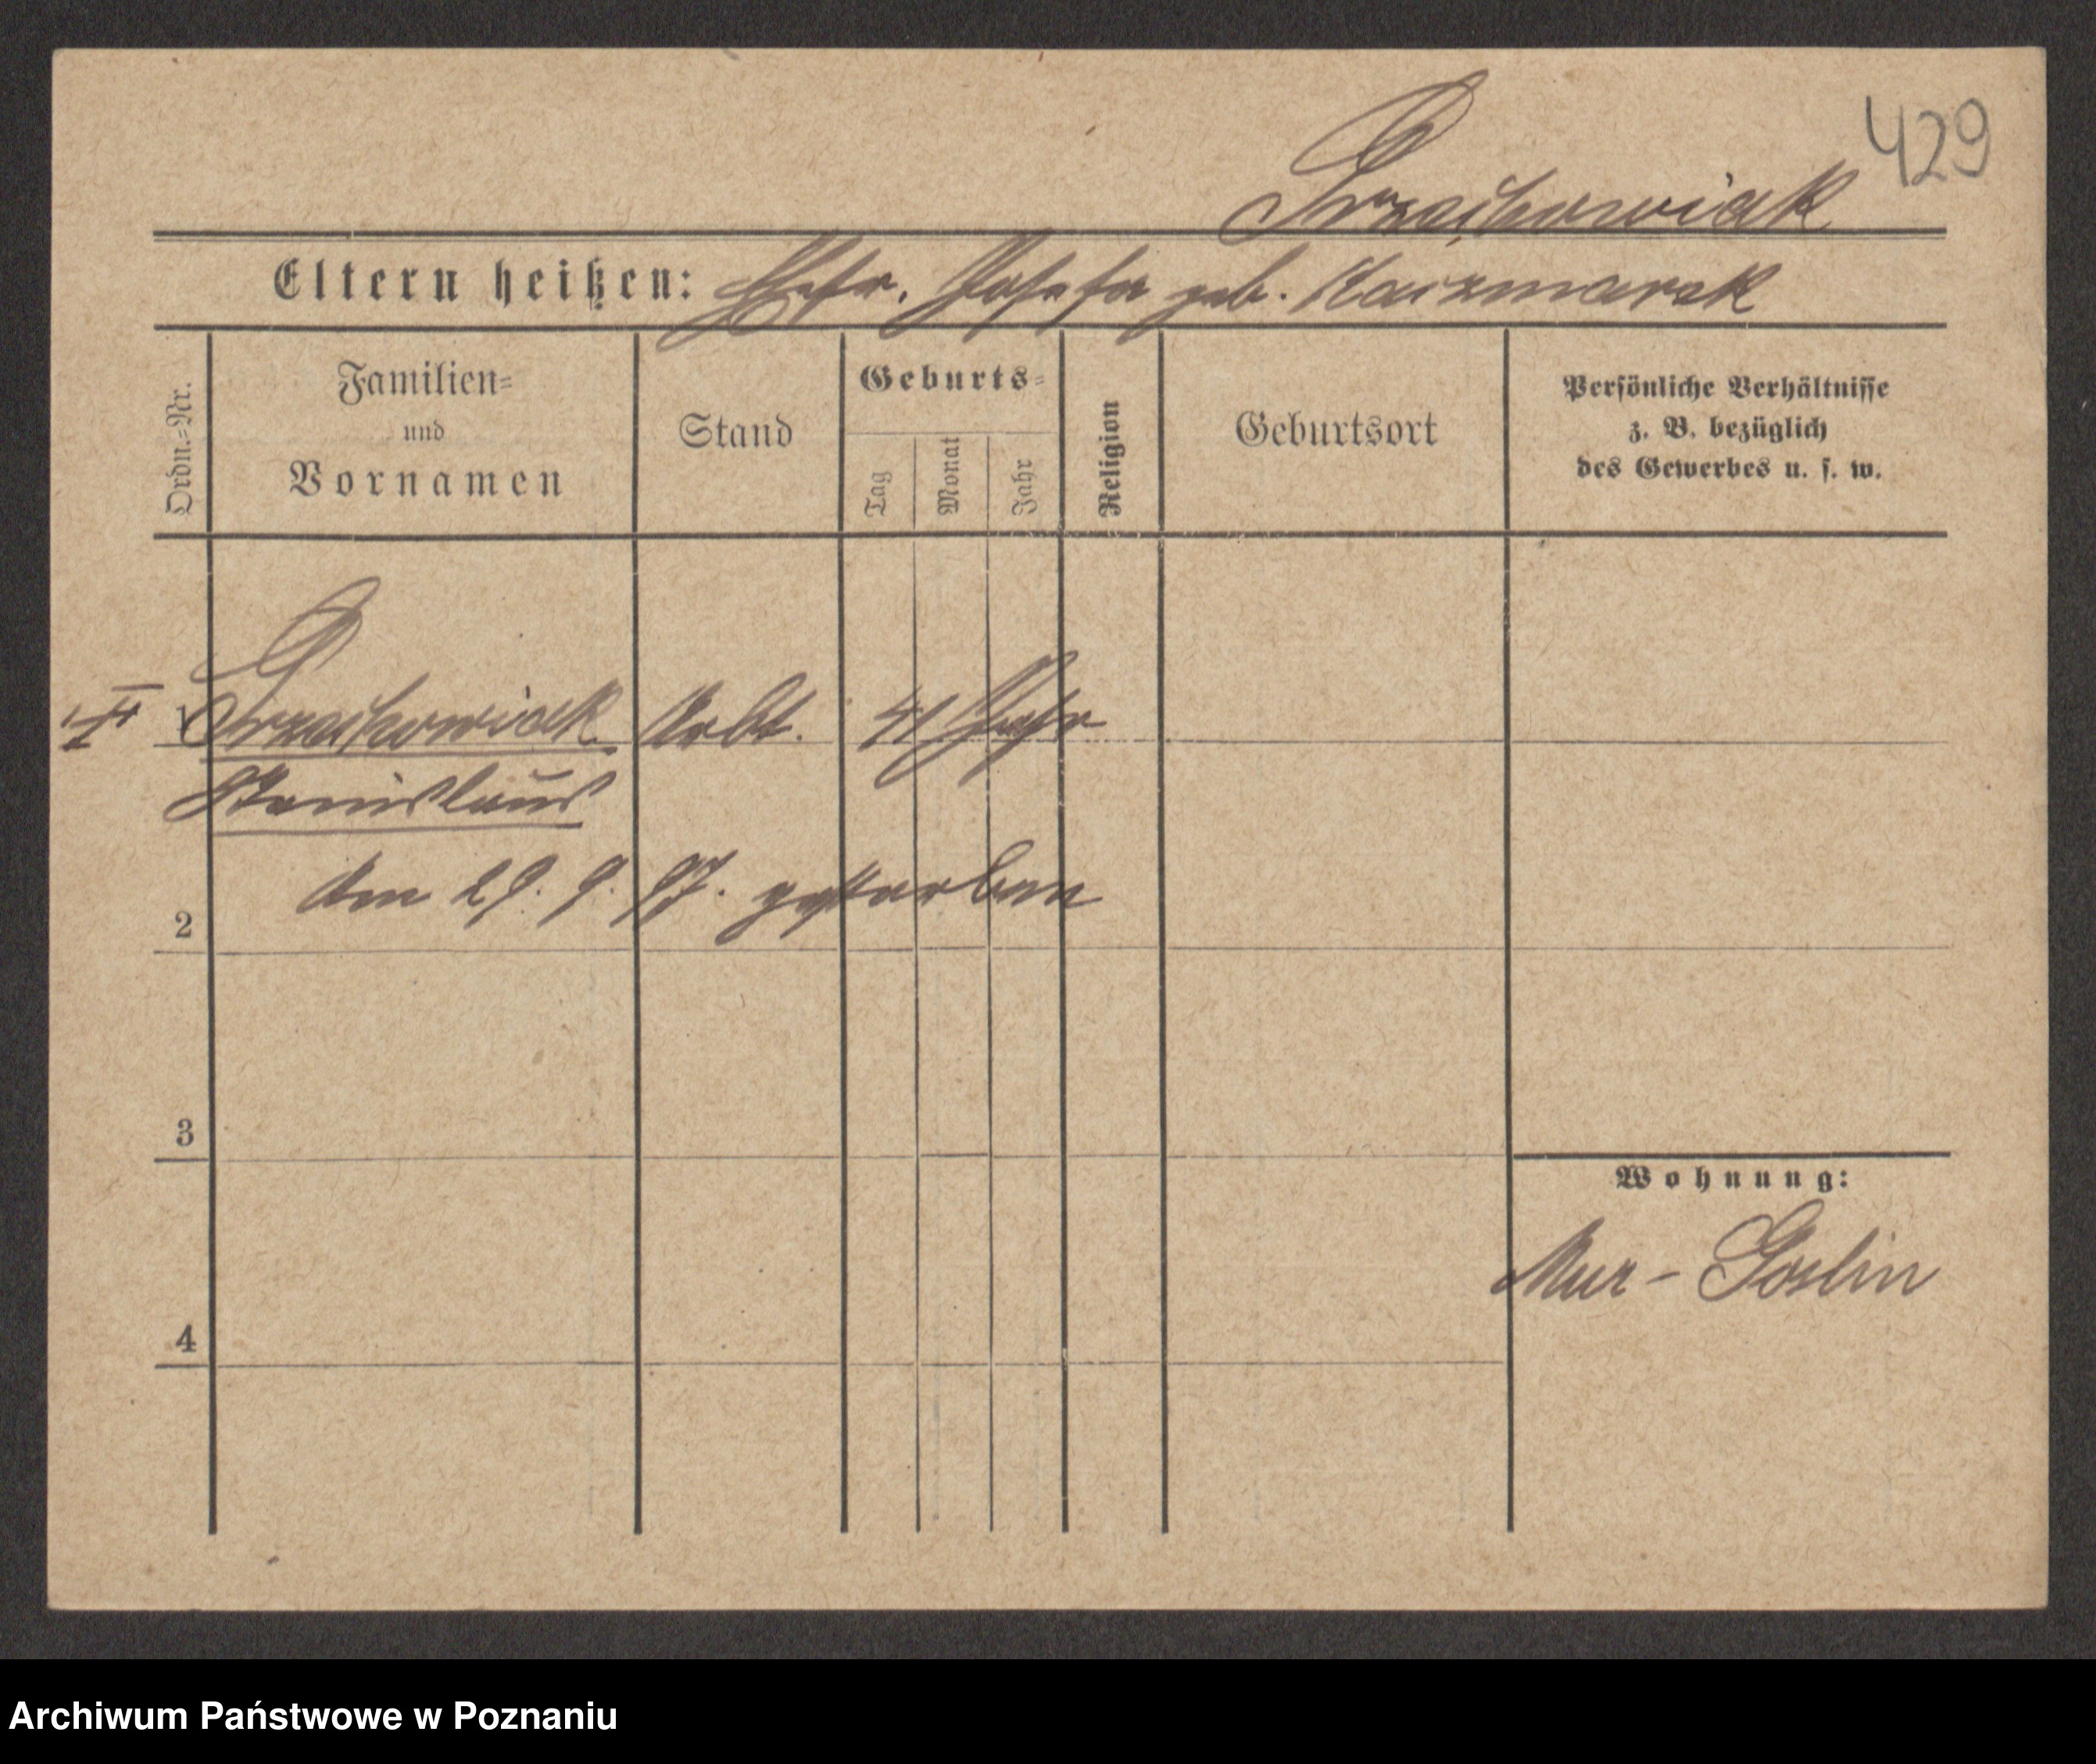 429
Eltern heißen: Ehefr. Josefa geb. Kaczmarek
Ordn.=Nr.
Familien=
und
Vornamen
Stand
Geburts=
Tag
Monat
Jahr
Religion
Geburtsort
Persönliche Verhältnisse
z. B. bezüglich
des Gewerbes u. s. w.
1 Arbt. 41 Jahr
Stanislaus
Am 29. 9. 97. gestorben
2
3
Wohnung:
Mur- Goslin
4
Archiwum Państwowe w Poznaniu